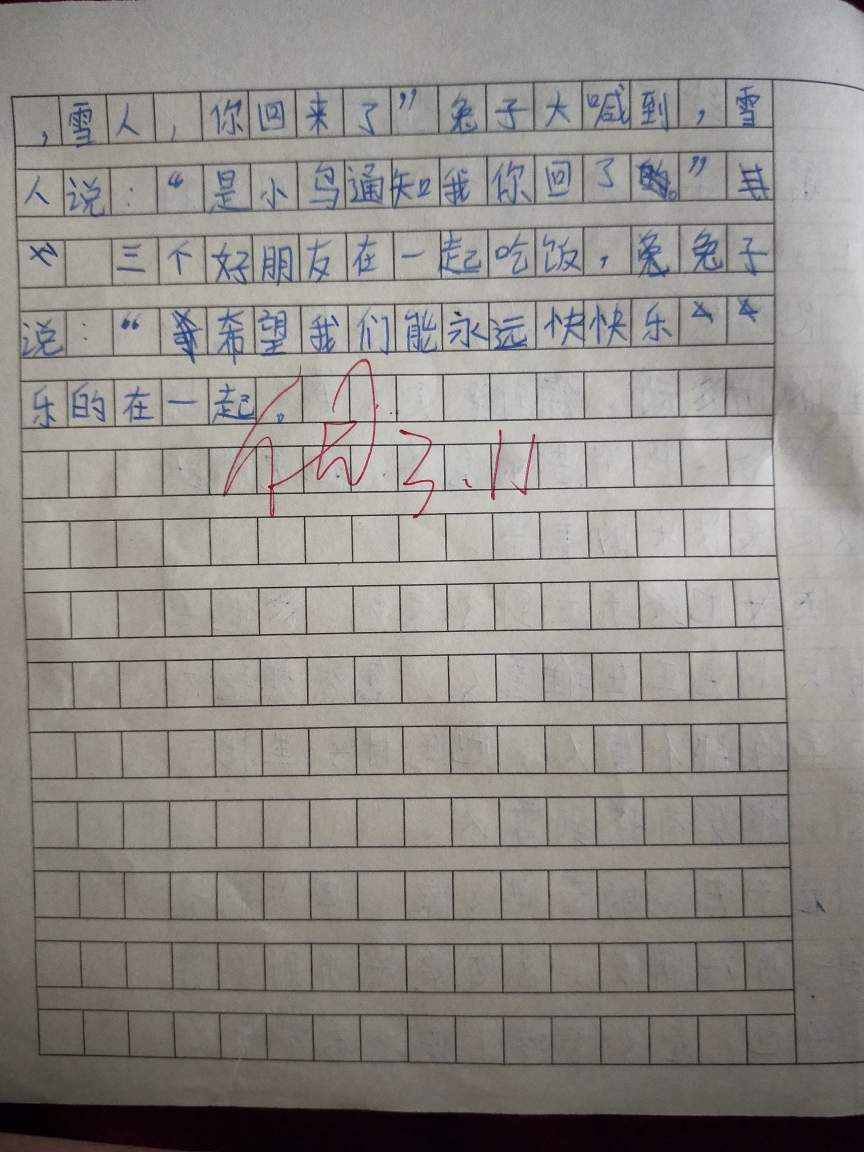 ，雪人，你回来了”兔子大喊到，雪
人说：“是小鸟通知我你回了。”
三个好朋友在一起吃饭，兔子
说：“希望我们能永远快快乐
乐的在一起。
3.11